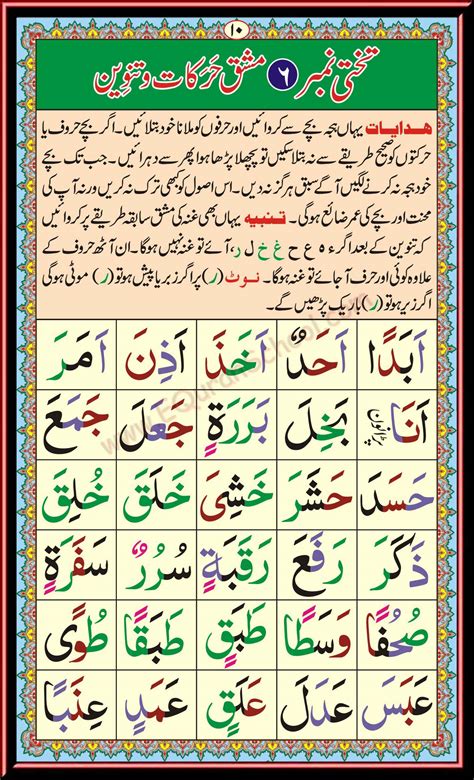 ۱۰
تختی نمبر ۶ مشق حَرکات و تنوِین
ھدایات یہاں ہجہ بچے سے کروائیں اور حرفوں کو ملانا خود بتلائیں۔ اگر بچے حروف یا
حرکتوں کو صحیح طریقے سے نہ بتلا سکیں تو پچھلا پڑھا ہوا پھر سے دہرائیں۔ جب تک بچے
خود ہجہ نہ کرنے لگیں آگے سبق ہرگز نہ دیں۔ اس اصول کو بھی ترک نہ کریں ورنہ آپ کی
محنت اور بچے کی عمر ضائع ہوگی۔ تنبیہ یہاں بھی غنہ کی مشق سابقہ طریقے پر کروائیں
کہ تنوین کے بعد اگر ء ہ ع ح غ خ ل ر آئے تو غنہ نہیں ہوگا۔ ان آٹھ حروف کے
علاوہ کوئی اور حرف آجائے تو غنہ ہوگا۔ نوٹ (ر) پر اگر زبر یا پیش ہو تو (ر) موٹی ہوگی
اگر زیر ہو تو (ر) باریک پڑھیں گے۔
اَبَدًا اَحَدٌ اَخَذَ اَذِنَ اَمَرَ
اَنَا بَخِلَ بَرَرَةٍ جَعَلَ جَمَعَ
حَسَدَ حَشَرَ خَشِیَ خَلَقَ خُلِقَ
ذَکَرَ رَفَعَ رَقَبَةٍ سُرُرٌ سَفَرَةٍ
صُحُفًا وَسَطًا طَبَقٍ طَبَقًا طُوًی
عَبَسَ عَدَلَ عَلَقٍ عَمَدٍ عِنَبًا
www.eQuranSchool.com